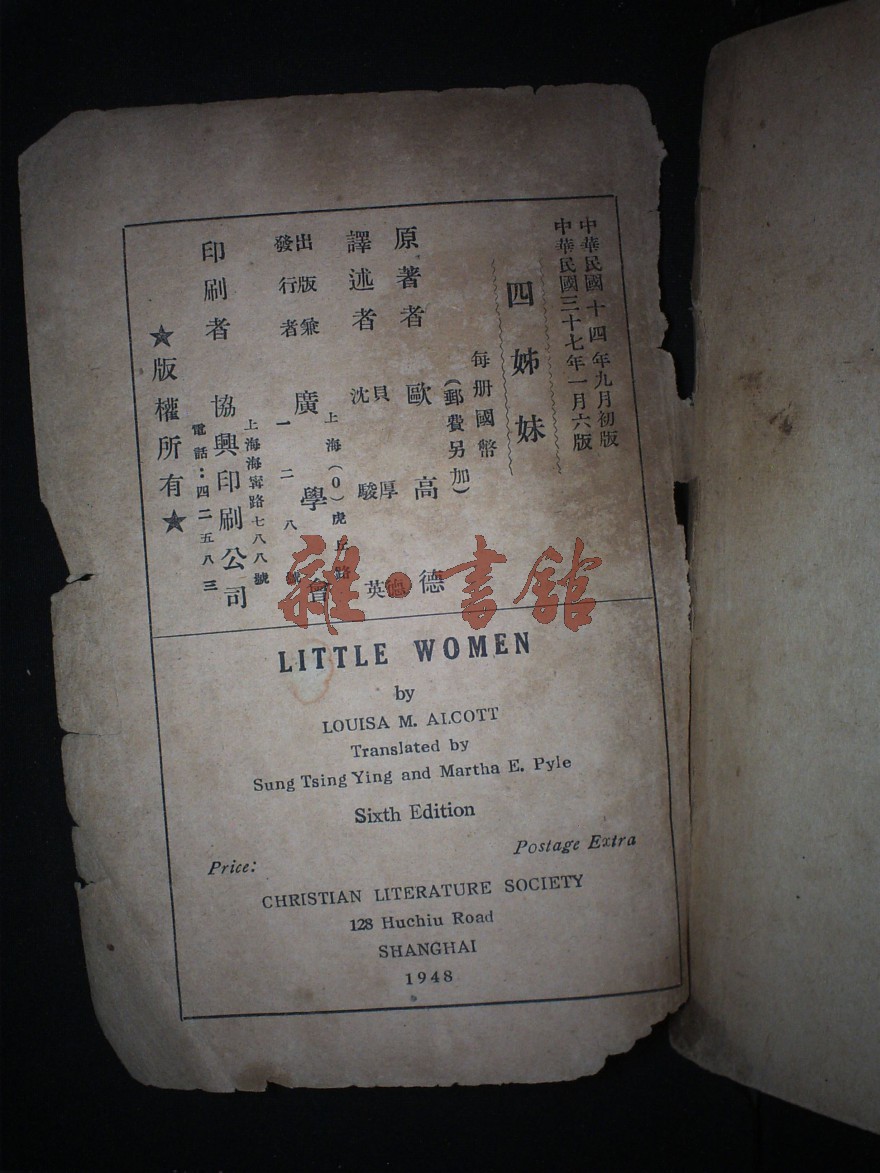 中華民國十四年九月初版
中華民國三十七年一月六版
四姊妹
每册國幣
(郵費另加)
原著者 歐高德
譯述者 貝厚德
沈駿英
出版兼
發行者 廣學會
上海(0)虎丘路
一二八號
印刷者 協興印刷公司
上海海寧路七八八號
電話:四二五八三
★版權所有★
雜·書館
LITTLE WOMEN
by
LOUISA M. ALCOTT
Translated by
Sung Tsing Ying and Martha E. Pyle
Sixth Edition
Price:
Postage Extra
CHRISTIAN LITERATURE SOCIETY
128 Huchiu Road
SHANGHAI
1948